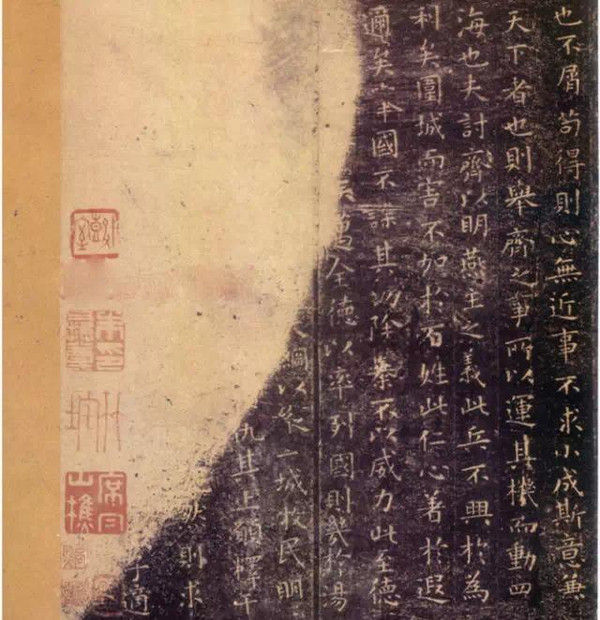 也不屑苟得則心無近事不求小成斯意兼
天下者也則舉齊之事所以運其機而動四
海也夫討齊以明燕主之義此兵不興於為
利矣圍城而害不加於百姓此仁心著於遐
邇矣舉國不謀其功除暴不以威力此至德
矣邁全德以率列國則幾於湯
綱以縱二城牧民明
仇其上願釋干
則求
于適
山樵